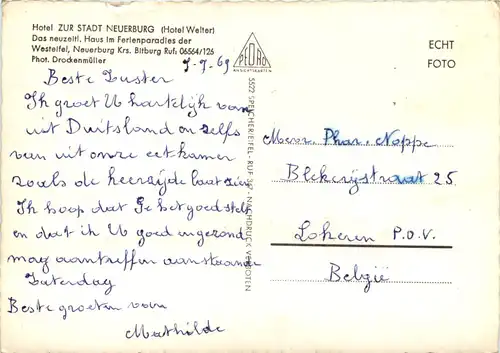 Hotel ZUR STADT NEUERBURG (Hotel Welter)
Das neuzeitl. Haus im Ferienparadies der
Westeifel, Neuerburg Krs. Bitburg Ruf: 06564/126
Phot. Drockenmüller
7-7-69
Beste Zuster
Ik groet U hartelijk van
uit Duitsland en zelfs
van uit onze eetkamer
zoals de keerzijde laat zien
Ik hoop dat Ge het goed stelt
en dat ik U goed en gezond
mag aantreffen aanstaande
Zaterdag
Beste groeten van
Mathilde
ANSICHTSKARTEN
5522 SPEICHER/EIFEL - RUF 347 - NACHDRUCK VERBOTEN
ECHT
FOTO
Phar. Noppe
Blekerijstraat 25
Lokeren P.O.V.
België